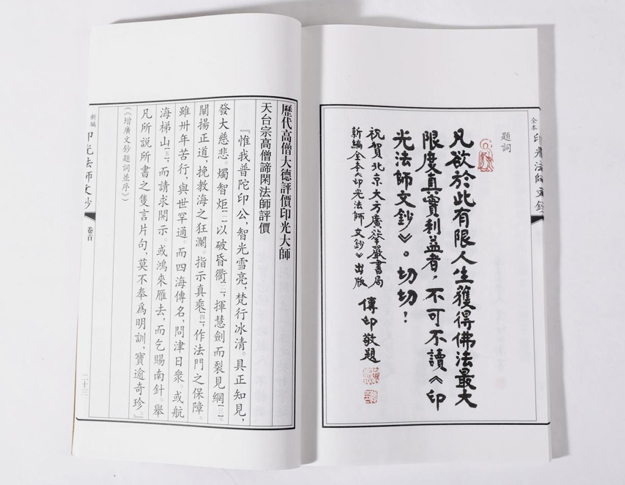 全本 印光法師文鈔
題詞
凡欲於此有限人生獲得佛法最大
限度真實利益者，不可不讀《印
光法師文鈔》。切切！
祝賀北京大方廣華嚴書局
新編全本《印光法師文鈔》出版
傳印敬題
歷代高僧大德評價印光大師
天台宗高僧諦閑法師評價
『惟我普陀印公，智光雪亮，梵行冰清。具正知見，
發大慈悲。燭智炬以破昏衢，揮慧劍而裂見網。
闡揚正道，挽教海之狂瀾，指示真乘，作法門之保障。
雖卅年苦行，與世罕通。而四海傳名，問津日衆。或航
海梯山，而請求開示。或鴻來雁去，而乞賜南針。舉
凡所說所書之隻言片句，莫不奉爲明訓，寶逾奇珍。』
（《增廣文鈔題詞並序》）
新編 印光法師文鈔 卷首
二十三